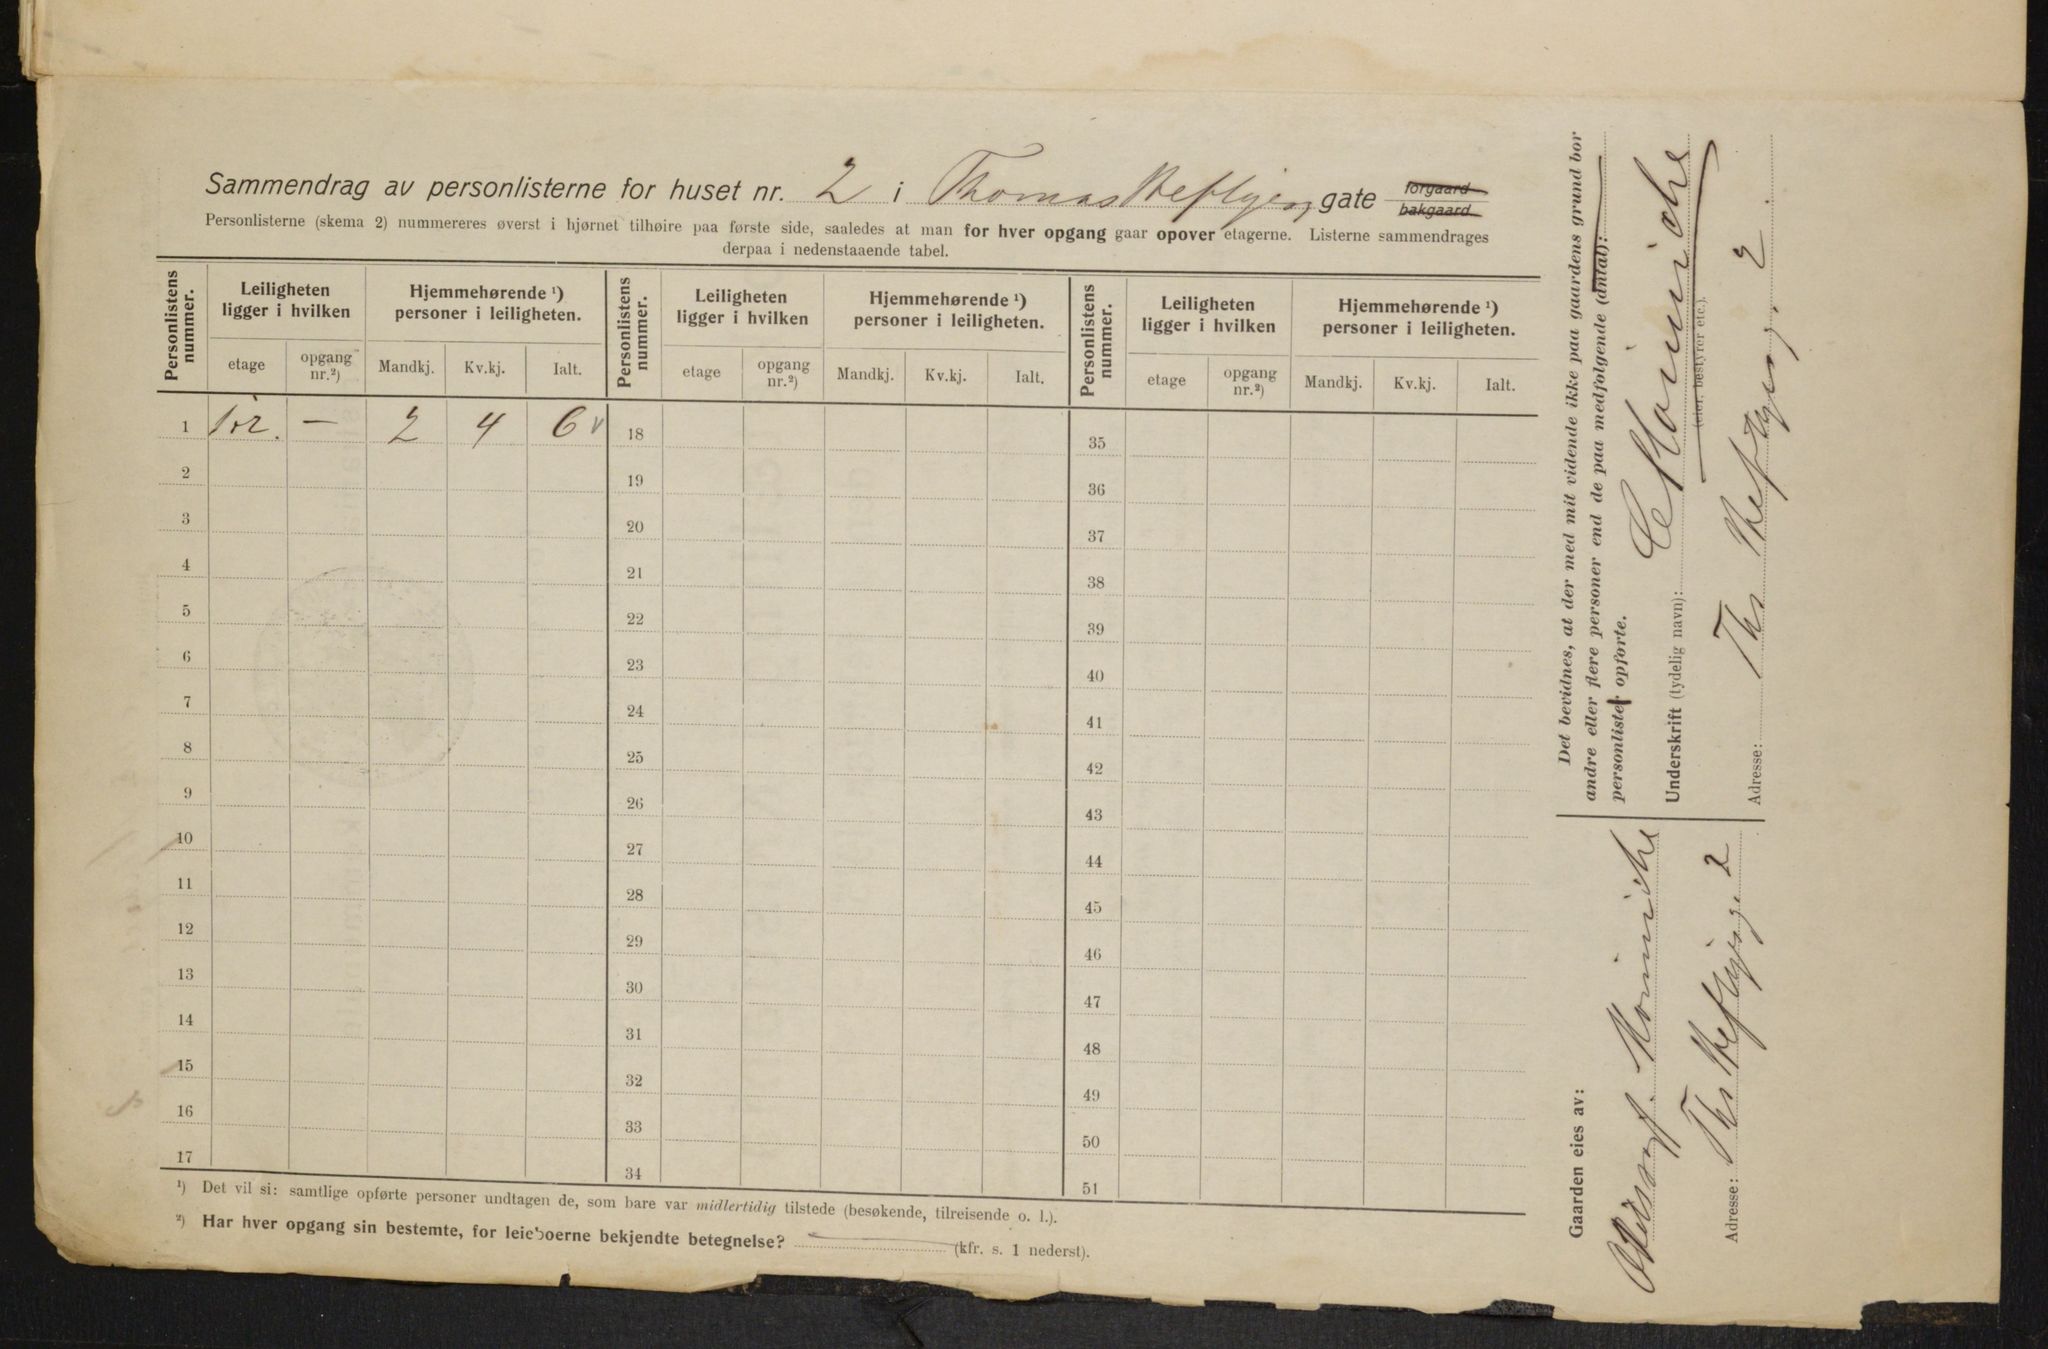 Sammendrag av personlisterne for huset nr. 2 i Thomas Heftyes gate forgaard bakgaard
Personlisterne (skema 2) nummereres øverst i hjørnet tilhøire paa første side, saaledes at man for hver opgang gaar opover etagerne. Listerne sammendrages
derpaa i nedenstaaende tabel.
Personlistens nummer. Leiligheten ligger i hvilken Hjemmehørende ¹) personer i leiligheten. Personlistens nummer. Leiligheten ligger i hvilken Hjemmehørende ¹) personer i leiligheten. Personlistens nummer. Leiligheten ligger i hvilken Hjemmehørende ¹) personer i leiligheten.
etage opgang nr.²) Mandkj. Kv.kj. Ialt. etage opgang nr.²) Mandkj. Kv.kj. Ialt. etage opgang nr.²) Mandkj. Kv.kj. Ialt.
1 — 2 4 6 18 35
2 19 36
3 20 37
4 21 38
5 22 39
6 23 40
7 24 41
8 25 42
9 26 43
10 27 44
11 28 45
12 29 46
13 30 47
14 31 48
15 32 49
16 33 50
17 34 51
¹) Det vil si: samtlige opførte personer undtagen de, som bare var midlertidig tilstede (besøkende, tilreisende o. l.).
²) Har hver opgang sin bestemte, for leieboerne bekjendte betegnelse? — (kfr. s. 1 nederst).
Det bevidnes, at der med mit vidende ikke paa gaardens grund bor
andre eller flere personer end de paa medfølgende (antal):
personlister opførte.
Underskrift (tydelig navn):
(eier, bestyrer etc.).
Adresse: Ths Heftyesg. 2.
Gaarden eies av:
Adresse: Ths Heftyesg. 2